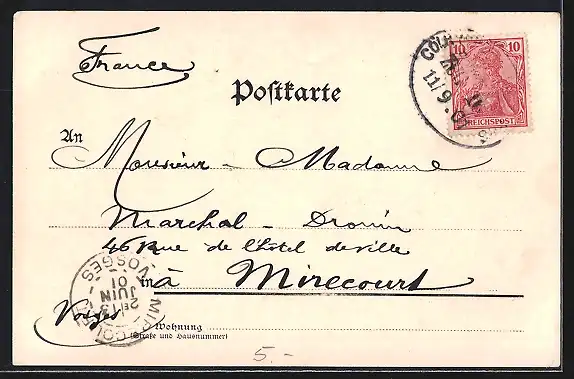 France
Postkarte
10 10
REICHSPOST
11/9
An
Monsieur - Madame
Marchal - Drouin
46 Rue de l'hôtel de ville
in à Mirecourt
Vosges
Wohnung
(Straße und Hausnummer)
MIRECOURT
VOSGES
13
JUIN
01
5.-